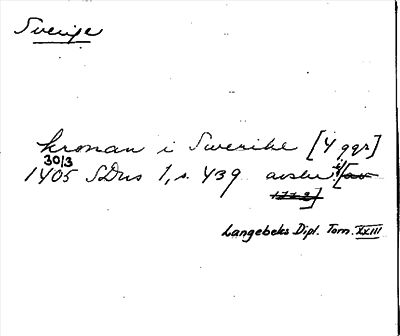 Sverige
kronan i Swerike [4 ggr]
30/3
1405 SDns 1, s. 439 avskr. [av
1772]
Langebeks Dipl. Tom. XXIII